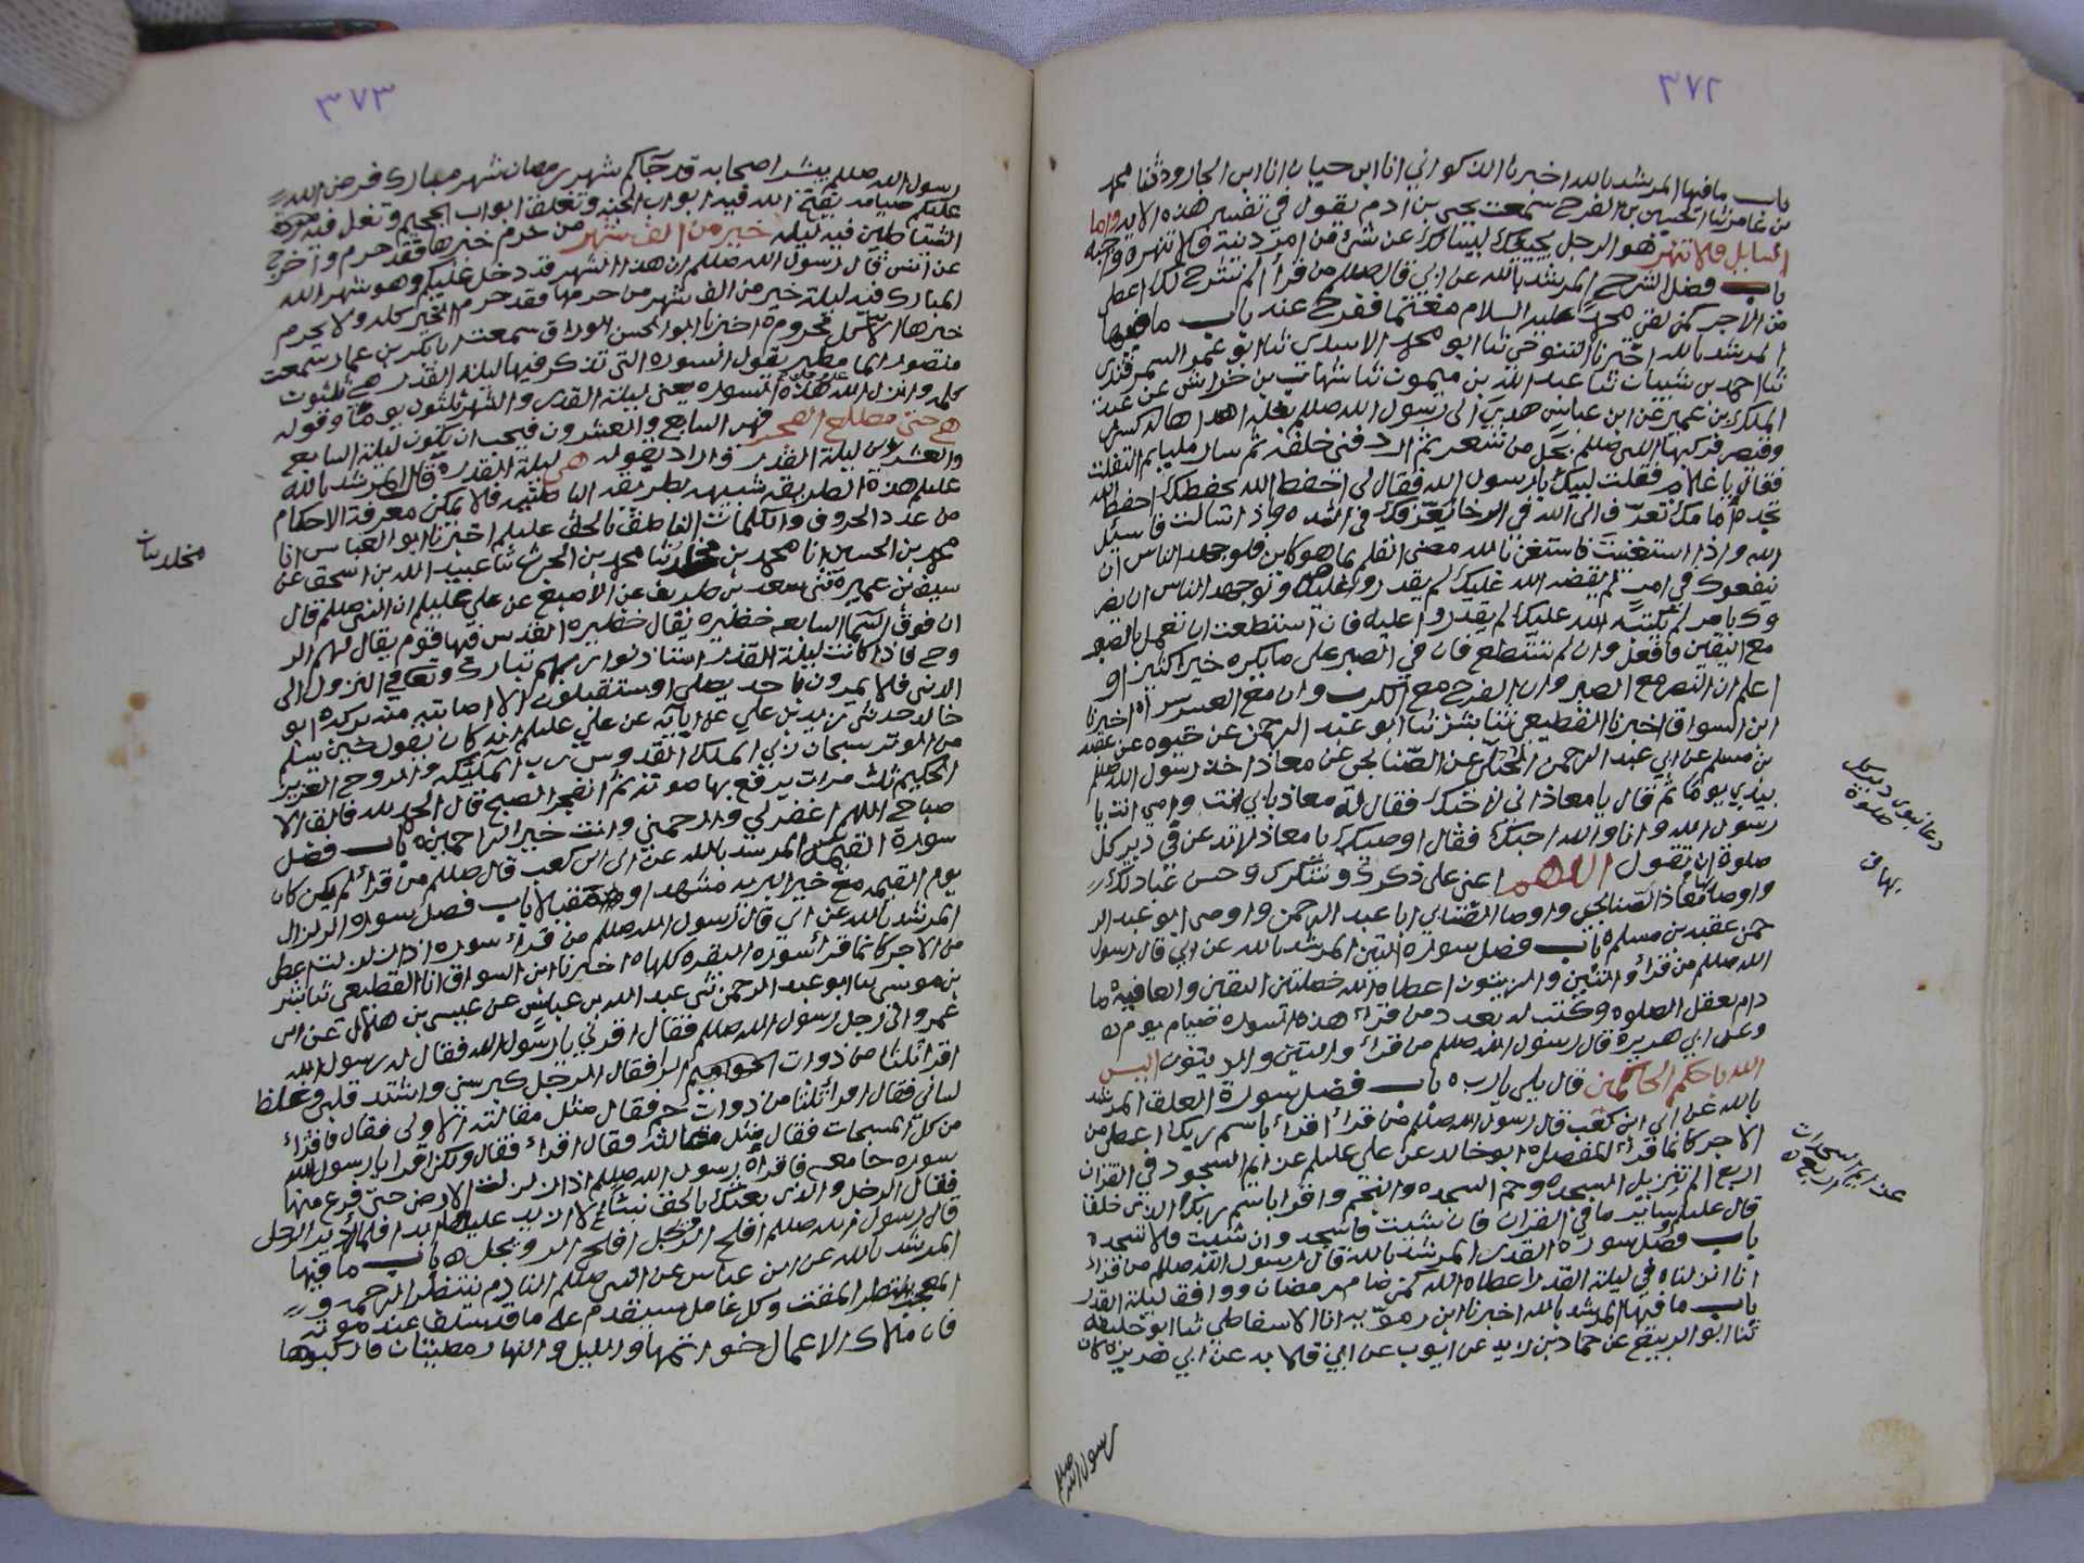 ٣٧٢
باب ما فيها المرشد بالله اخبرنا الذكواني انا ابن حيان انا ابن الجارود ثنا محمد
بن عامر ثنا الحسين بن الفرج سمعت يحيى بن ادم يقول في تفسير هذه الاية واما
السايل فلا تنهر هو الرجل يجيبك ليسالك عن شئ من امر دينه فلا تنهره واجبه
باب فضل الشرح المرشد بالله عن ابي قال صللم من قرأ الم نشرح لك اعطي
من الاجر كمن لقي محمد عليه السلام مغتما ففرح عنه باب ما فيها
المرشد بالله اخبرنا التنوخي ثنا ابو محمد الاسدي ثنا ابو عمرو السمرقندي
ثنا احمد بن شيبان ثنا عبد الله بن ميمون ثنا شهاب بن خراش عن عبد
الملك بن عمير عن ابن عباس هدي الى رسول الله صللم بغله اهداها له كسرى
وقيصر فركبها النبي صللم بحبل من شعر ثم اردفني خلفه ثم سار مليا ثم التفت
فقال يا غلام فقلت لبيك يا رسول الله فقال لي احفظ الله يحفظك احفظ الله
تجده امامك تعرف الى الله في الرخا يعرفك في الشده واذا سالت فاسئل
الله واذا استعنت فاستعن بالله مضى القلم بما هو كاين فلو جهد الناس ان
ينفعوك في امر لم يقضه الله عليك لم يقدروا عليه ولو جهد الناس ان يضر
وك بامر لم يكتبه الله عليك لم يقدروا عليه فان استطعت ان تعمل بالصبر
مع اليقين فافعل وان لم تستطع فان في الصبر على ما يكره خير اكثير او
اعلم ان النصر مع الصبر وان الفرج مع الكرب وان مع العسر يسرا ه اخبرنا
ابن السواق اخبرنا القطيعي ثنا بشر ثنا ابو عبد الرحمن عن حيوه عن عقبه
بن مسلم عن ابي عبد الرحمن الحبلي عن الصنابحي عن معاذ اخذ رسول الله صللم
بيدي يوما ثم قال يا معاذ اني لاحبك فقال له معاذ بابي انت وامي انت يا
رسول الله وانا والله احبك فقال اوصيك يا معاذ لا تدعن في دبر كل
صلوة ان تقول اللهم اعني على ذكرك وشكرك وحسن عبادتك
واوصا بها معاذ الصنابحي واوصا الصنابحي ابا عبد الرحمن واوصى ابو عبد الر
حمن عقبه بن مسلم ه باب فضل سورة التين المرشد بالله عن ابي قال رسول
الله صللم من قرأ والتين والزيتون اعطاه الله خصلتين اليقين والعافيه ما
دام يعقل الصلوه وكتب له بعدد من قرأ هذه السوره صيام يوم ه
وعن ابي هريرة قال رسول الله صللم من قرأ والتين والزيتون اليس
الله باحكم الحاكمين قال بلى يا رب ه باب فضل سورة العلق المرشد
بالله عن ابي ابن كعب قال رسول الله صللم من قرأ اقرأ باسم ربك اعطي من
الاجر كانما قرأ المفصل ه ابو خالد عن علي عليلم عزايم السجود في القران
اربع الم تنزيل السجده وحم السجده والنجم واقرا باسم ربك الذي خلق
قال عليلم ساير ما في القران فان شيت فاسجد وان شيت فلا تسجد ه
باب فضل سورة القدر المرشد بالله قال رسول الله صللم من قرأ
انا انزلناه في ليلة القدر اعطاه الله كمن صام رمضان ووافق ليلة القدر
باب ما فيها المرشد بالله اخبرنا ابن رمويه انا الاسفاطي ثنا ابو خليفه
ثنا ابو الربيع عن حماد بن زيد عن ايوب عن ابي قلابه عن ابي هريره كان
رسول الله صللم
دعا نبوي دبر كل
صلوة
بها ق
عزايم السجدات
اربع ه
٣٧٣
رسول الله صللم يبشر اصحابه قد جآكم شهر رمضان شهر مبارك فرض الله
عليكم صيامه يفتح الله فيه ابواب الجنه وتغلق ابواب الجحيم وتغل فيه مردة
الشياطين فيه ليله خير من الف شهر من حرم خيرها فقد حرم واخرج
عن انس قال رسول الله صللم ان هذا الشهر قد دخل عليكم وهو شهر الله
المبارك فيه ليلة خير من الف شهر من حرمها فقد حرم الخير كله ولا يحرم
خيرها الا كل محروم ه اخبرنا ابو الحسن الوراق سمعت ابا بكر بن عمار سمعت
منصور ابا مطهر يقول السوره التي تذكر فيها ليلة القدر هي ثلثون
كلمه وانزل الله هذه السوره يعني ليلة القدر والشهر ثلثون يوما وقوله
هي حتى مطلع الفجر فهي السابع والعشرون فيجب ان يكون ليلة السابع
والعشرين ليلة القدر واراد بقوله هي ليلة القدر ه قال المرشد بالله
عليلم هذه الطريقه شبيهه بطريقة الباطنيه فلا يمكن معرفة الاحكام
من عدد الحروف والكلمات الناطق بالحق عليلم اخبرنا ابو العباس انا
محمد بن الحسين انا محمد بن مخلد ثنا محمد بن الحرث ثنا عبيد الله بن اسحق عن
سيف بن عميرة ثني سعد بن طريف عن الاصبغ عن علي عليلم ان النبي صللم قال
ان فوق السما السابعه حظيره يقال حظيره القدس فيها قوم يقال لهم الر
وح فاذا كانت ليلة القدر استاذنوا ربهم تبارك وتعالى في النزول الى
الدنيا فلا يمرون باحد يصلي او يستقبلون الا اصابته منه بركه ه ابو
خالد حدثني زيد بن علي عن ابآيه عن علي عليلم انه كان يقول حين يسلم
من الوتر سبحان ربي الملك القدوس رب الملآيكه والروح العزيز
الحكيم ثلث مرات يرفع بها صوته ثم انفجر الصبح قال الحمد لله فالق الا
صباح اللهم اغفر لي وارحمني وانت خير الراحمين ه باب فضل
سورة القيمه المرشد بالله عن ابي ابن كعب قال صللم من قرأ لم يكن كان
يوم القيمه مع خير البريه مشهدا ومقيلا ه باب فضل سورة الزلزال
المرشد بالله عن ابي قال رسول الله صللم من قرأ سوره اذا زلزلت اعطي
من الاجر كانما قرأ سورة البقره كلها ه اخبرنا ابن السواق انا القطيعي ثنا بشر
بن موسى ثنا ابو عبد الرحمن ثني عبد الله بن عباس عن عيسى بن هلال عن ابن
عمرو اتى رجل رسول الله صللم فقال اقرئني يا رسول الله فقال له رسول الله
اقرأ ثلثا من ذوات الر فقال الرجل كبر سني واشتد قلبي وغلظ
لساني فقال اقرا ثلثا من ذوات حم فقال مثل مقالته الاولى فقال فاقرأ
من كل المسبحات فقال مثل مقالته فقال اقرأ فقال ولكن اقرا يا رسول الله
سوره جامعه فاقرأه رسول الله صللم اذا زلزلت الارض حتى فرغ منها
فقال الرجل والذي بعثك بالحق نبيا لا ازيد عليها ابدا فلما ادبر الرجل
قال رسول الله صللم افلح الرويجل افلح الرويجل ه باب ما فيها
المرشد بالله عن ابن عباس عن النبي صللم النادم ينتظر الرحمه و
المعجب ينتظر المقت وكل عامل سيقدم على ما قد سلف عند موته
فان ملاك الاعمال خواتمها والليل والنهار مطيتان فاركبوها
مخلد بيان